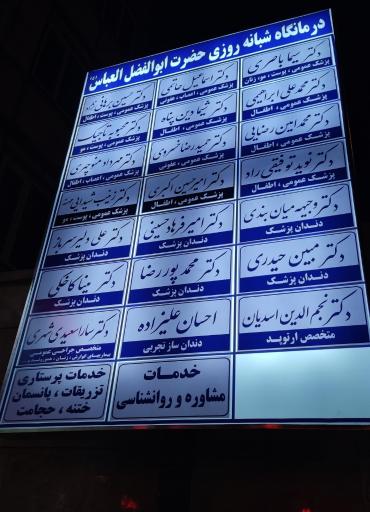 درمانگاه شبانه روزی حضرت ابوالفضل العباس (ع)
دکتر سیما باصری
پزشک عمومی ، پوست ، مو، زنان
دکتر اسماعیل حاتمی
پزشک عمومی ، اعصاب ، عفونی
دکتر حسین برهانی نژاد
پزشک عمومی ، پوست ، اطفال
دکتر محمدعلی ابراهیمی
پزشک عمومی ، اطفال
دکتر شیما دین پناه
پزشک عمومی ، اطفال
دکتر محبوبه تاجیک
پزشک عمومی ، پوست ، مو
دکتر محمدامین رضایی
پزشک عمومی ، اطفال
دکتر حمیدرضا خسروی
پزشک عمومی ، عفونی
دکتر مهرداد منوچهری
پزشک عمومی ، اعصاب ، اطفال
دکتر نوید توفیقی راد
پزشک عمومی ، اطفال
دکتر امیرحسین اکبری
پزشک عمومی ، اطفال
دکتر زینب
پزشک عمومی ، پوست ، مو
دکتر وجیهه میان بندی
دندان پزشک
دکتر امیر فرهاد حسینی
دندان پزشک
دکتر علی دلیر سرباز
دندان پزشک
دکتر مبین حیدری
دندان پزشک
دکتر محمد پوررضا
دندان پزشک
دکتر مینا کاخکی
دندان پزشک
دکتر نجم الدین اسدیان
متخصص ارتوپد
احسان علیزاده
دندان ساز تجربی
دکتر سارا سعیدی
متخصص جراحی عمومی
بیماریهای گوارش ، زنان ،
خدمات
مشاوره و روانشناسی
خدمات پرستاری
تزریقات ، پانسمان
ختنه ، حجامت